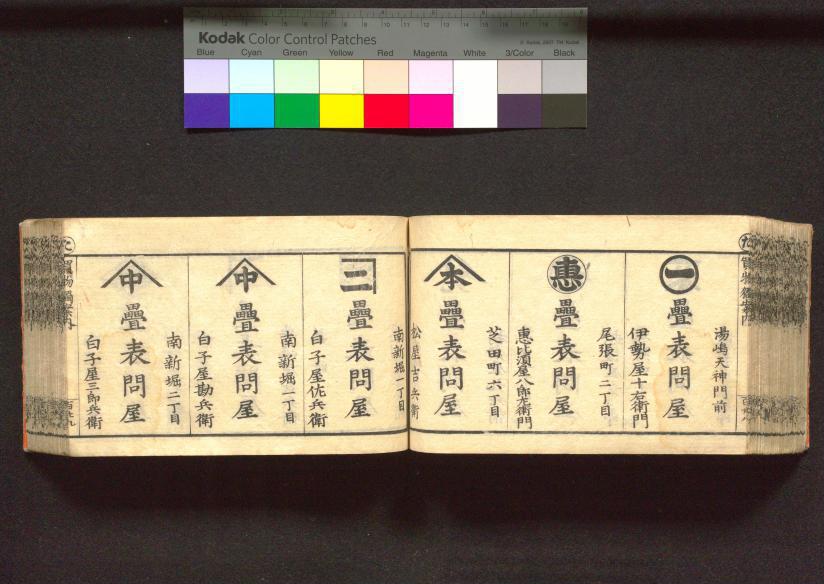 Kodak Color Control Patches
Blue Cyan Green Yellow Red Magenta White 3/Color Black
湯嶋天神門前
㊀
疊表問屋
伊勢屋十右衛門
尾張町二丁目
惠
疊表問屋
惠比須屋八郎左衛門
芝田町六丁目
本
疊表問屋
松屋吉兵衛
南新堀一丁目
二
疊表問屋
白子屋佐兵衛
南新堀一丁目
中
疊表問屋
白子屋勘兵衛
南新堀二丁目
中
疊表問屋
白子屋三郎兵衛